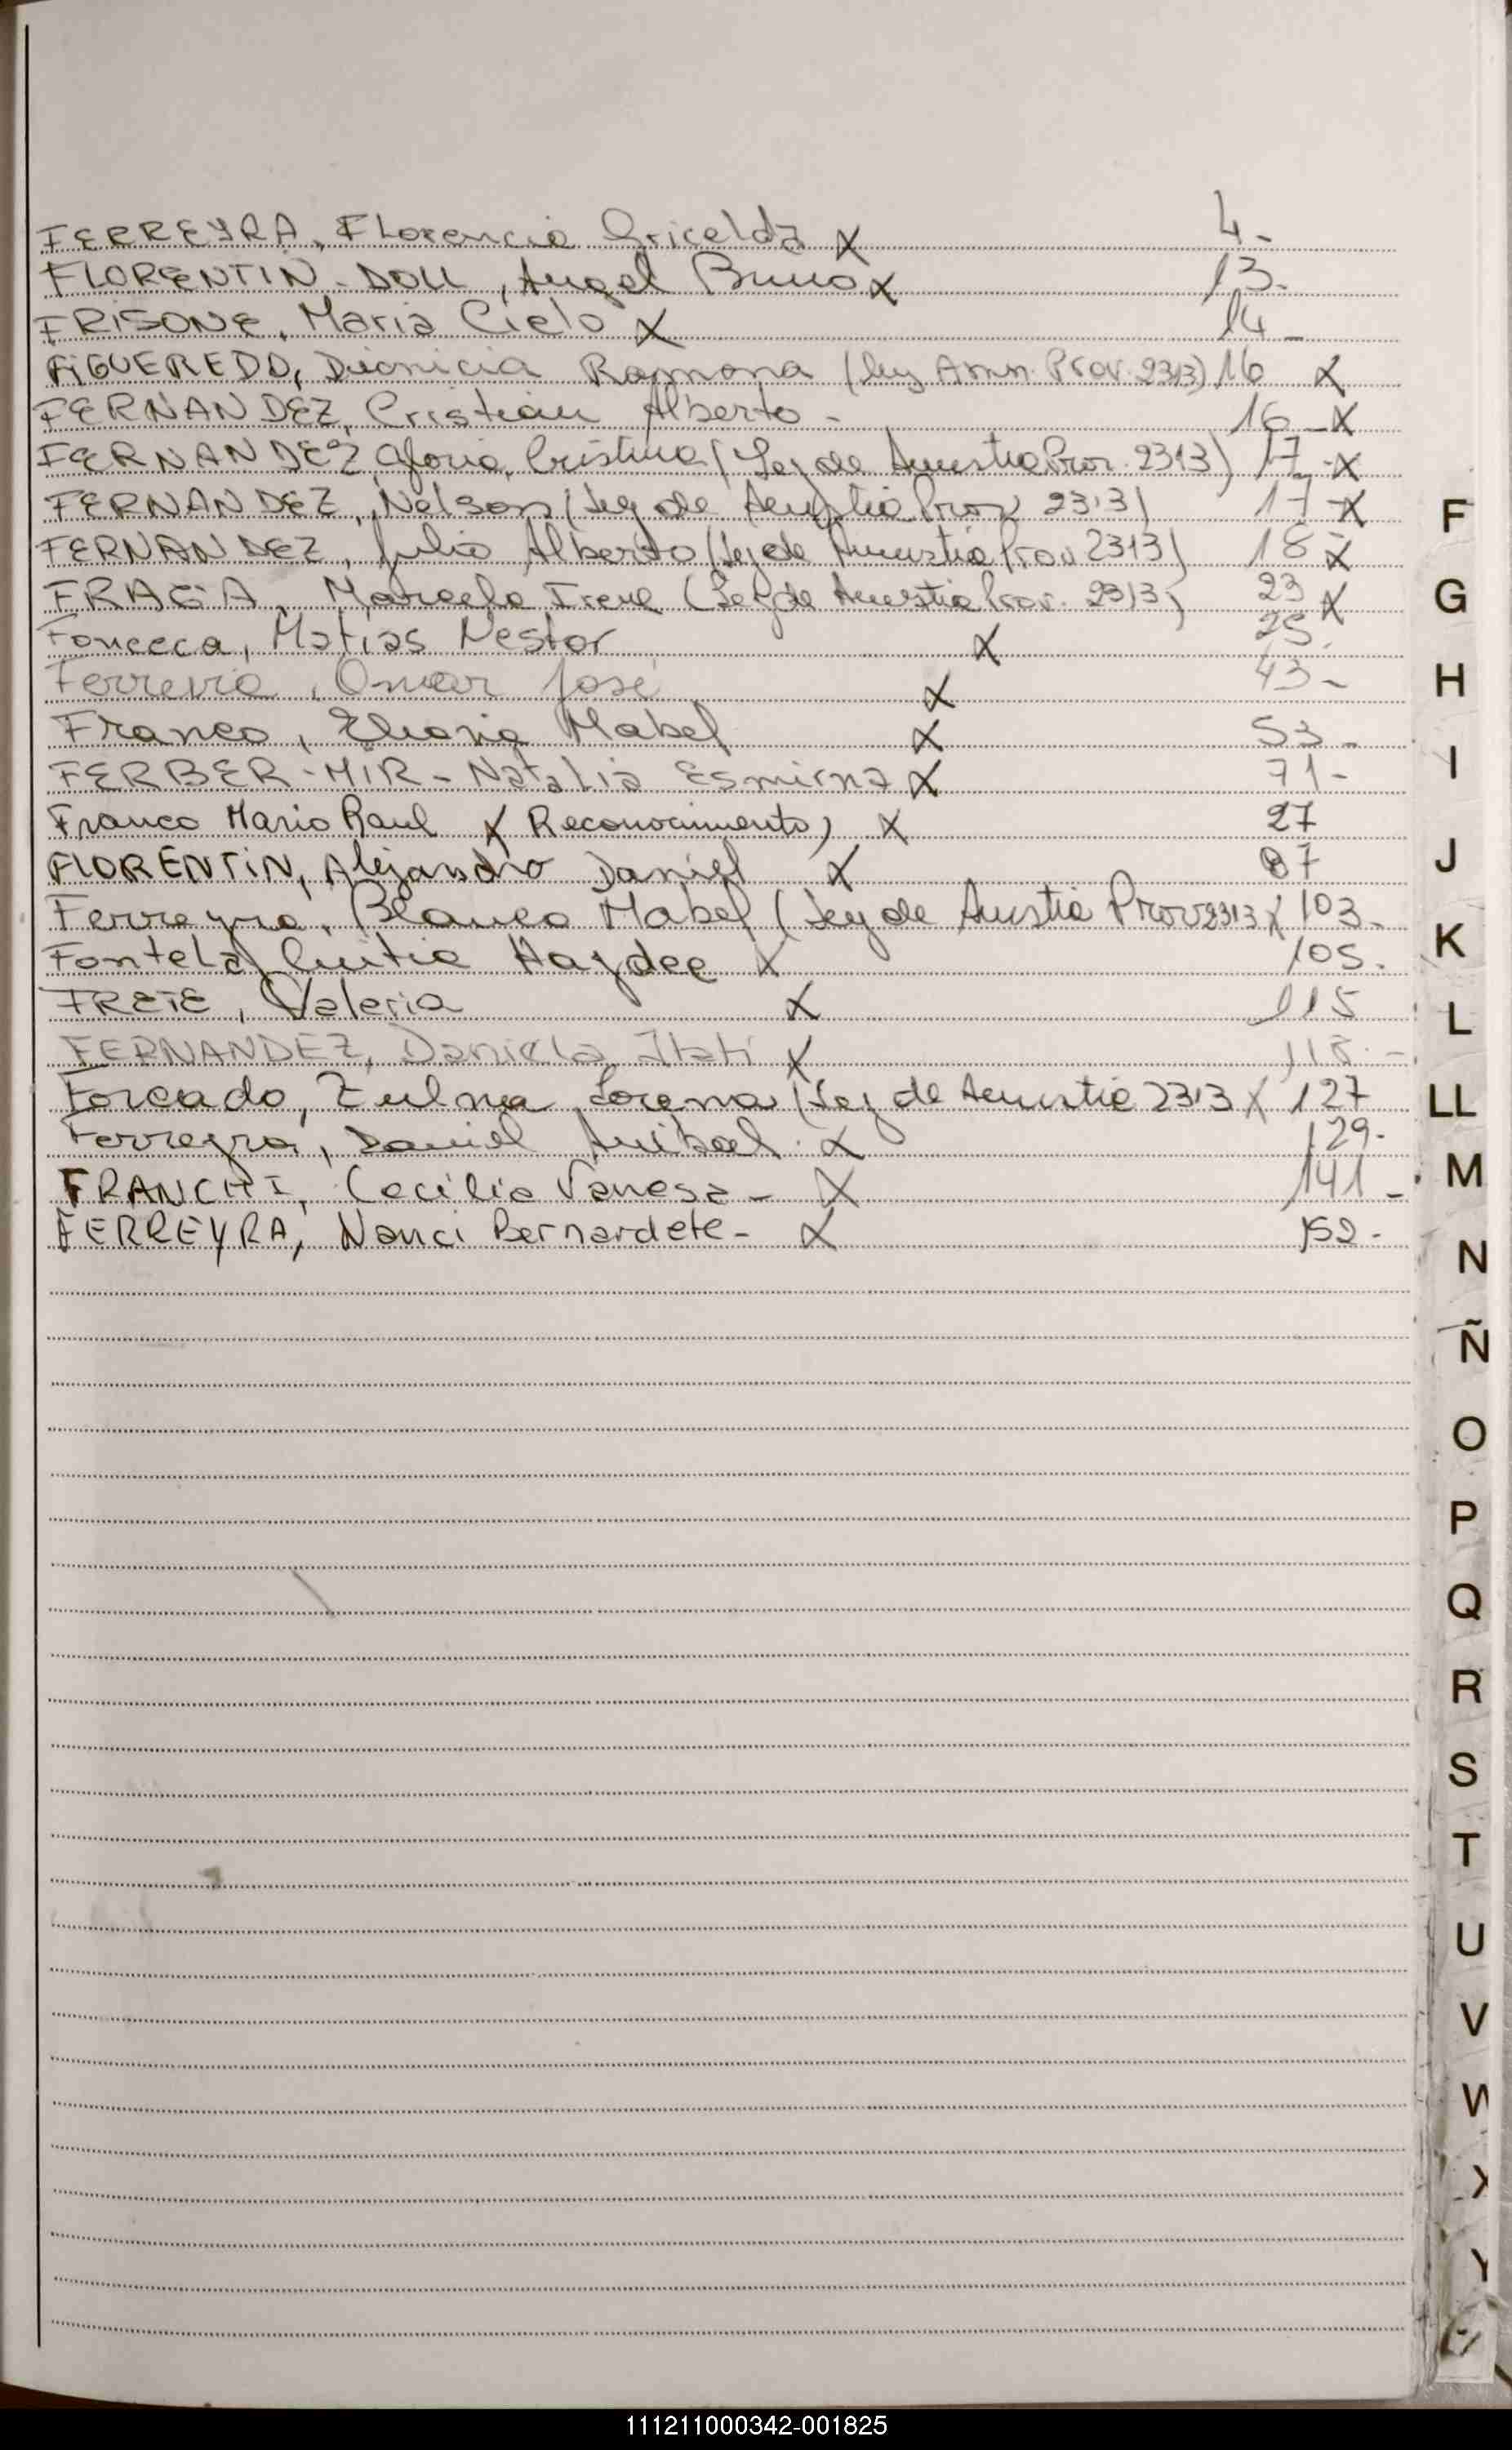 FERREYRA, Florencia Gricelda X 4.-
FLORENTIN - DOLL, Angel Bruno X 13.-
FRISONE, Maria Cielo X 14 -
FIGUEREDO, Dionicia Ramona (ley Amn. Prov. 2313) 16 X
FERNANDEZ, Cristian Alberto - 16 - X
FERNANDEZ Gloria, Cristina (Ley de Amnstia Prov. 2313) 17 - X
FERNANDEZ, Nelson (Ley de Amnstia Prov 2313) 17 - X
FERNANDEZ, Julio Alberto (Ley de Amnstia Prov 2313) 18 - X
FRAGA, Marcela Irene (Ley de Amnstia Prov. 2313) 23 X
Fonceca, Matias Nestor X 25.
Ferreira, Omar José X 43 -
Franco, Eliana Mabel X 53 -
FERBER - MIR - Natalia Esmirna X 71 -
Franco Mario Raul X Reconocimento) X 27
FLORENTIN, Alejandro Daniel X 87
Ferreyra, Blanca Mabel (Ley de Amstia Prov 2313 X 103 -
Fontela Cintia Haydee X 105.
FRETE, Valeria X 115
FERNANDEZ, Daniela Itatí X 118. -
Forcado, Zulma Lorena (Ley de Amnstia 2313 X 127
Ferreyra, Daniel Anibal. X 129-
FRANCHI, Cecilia Vanesa - X 141 -
FERREYRA, Nanci Bernardete - X 152 -
F
G
H
I
J
K
L
LL
M
N
Ñ
O
P
Q
R
S
T
U
V
W
X
Y
111211000342-001825